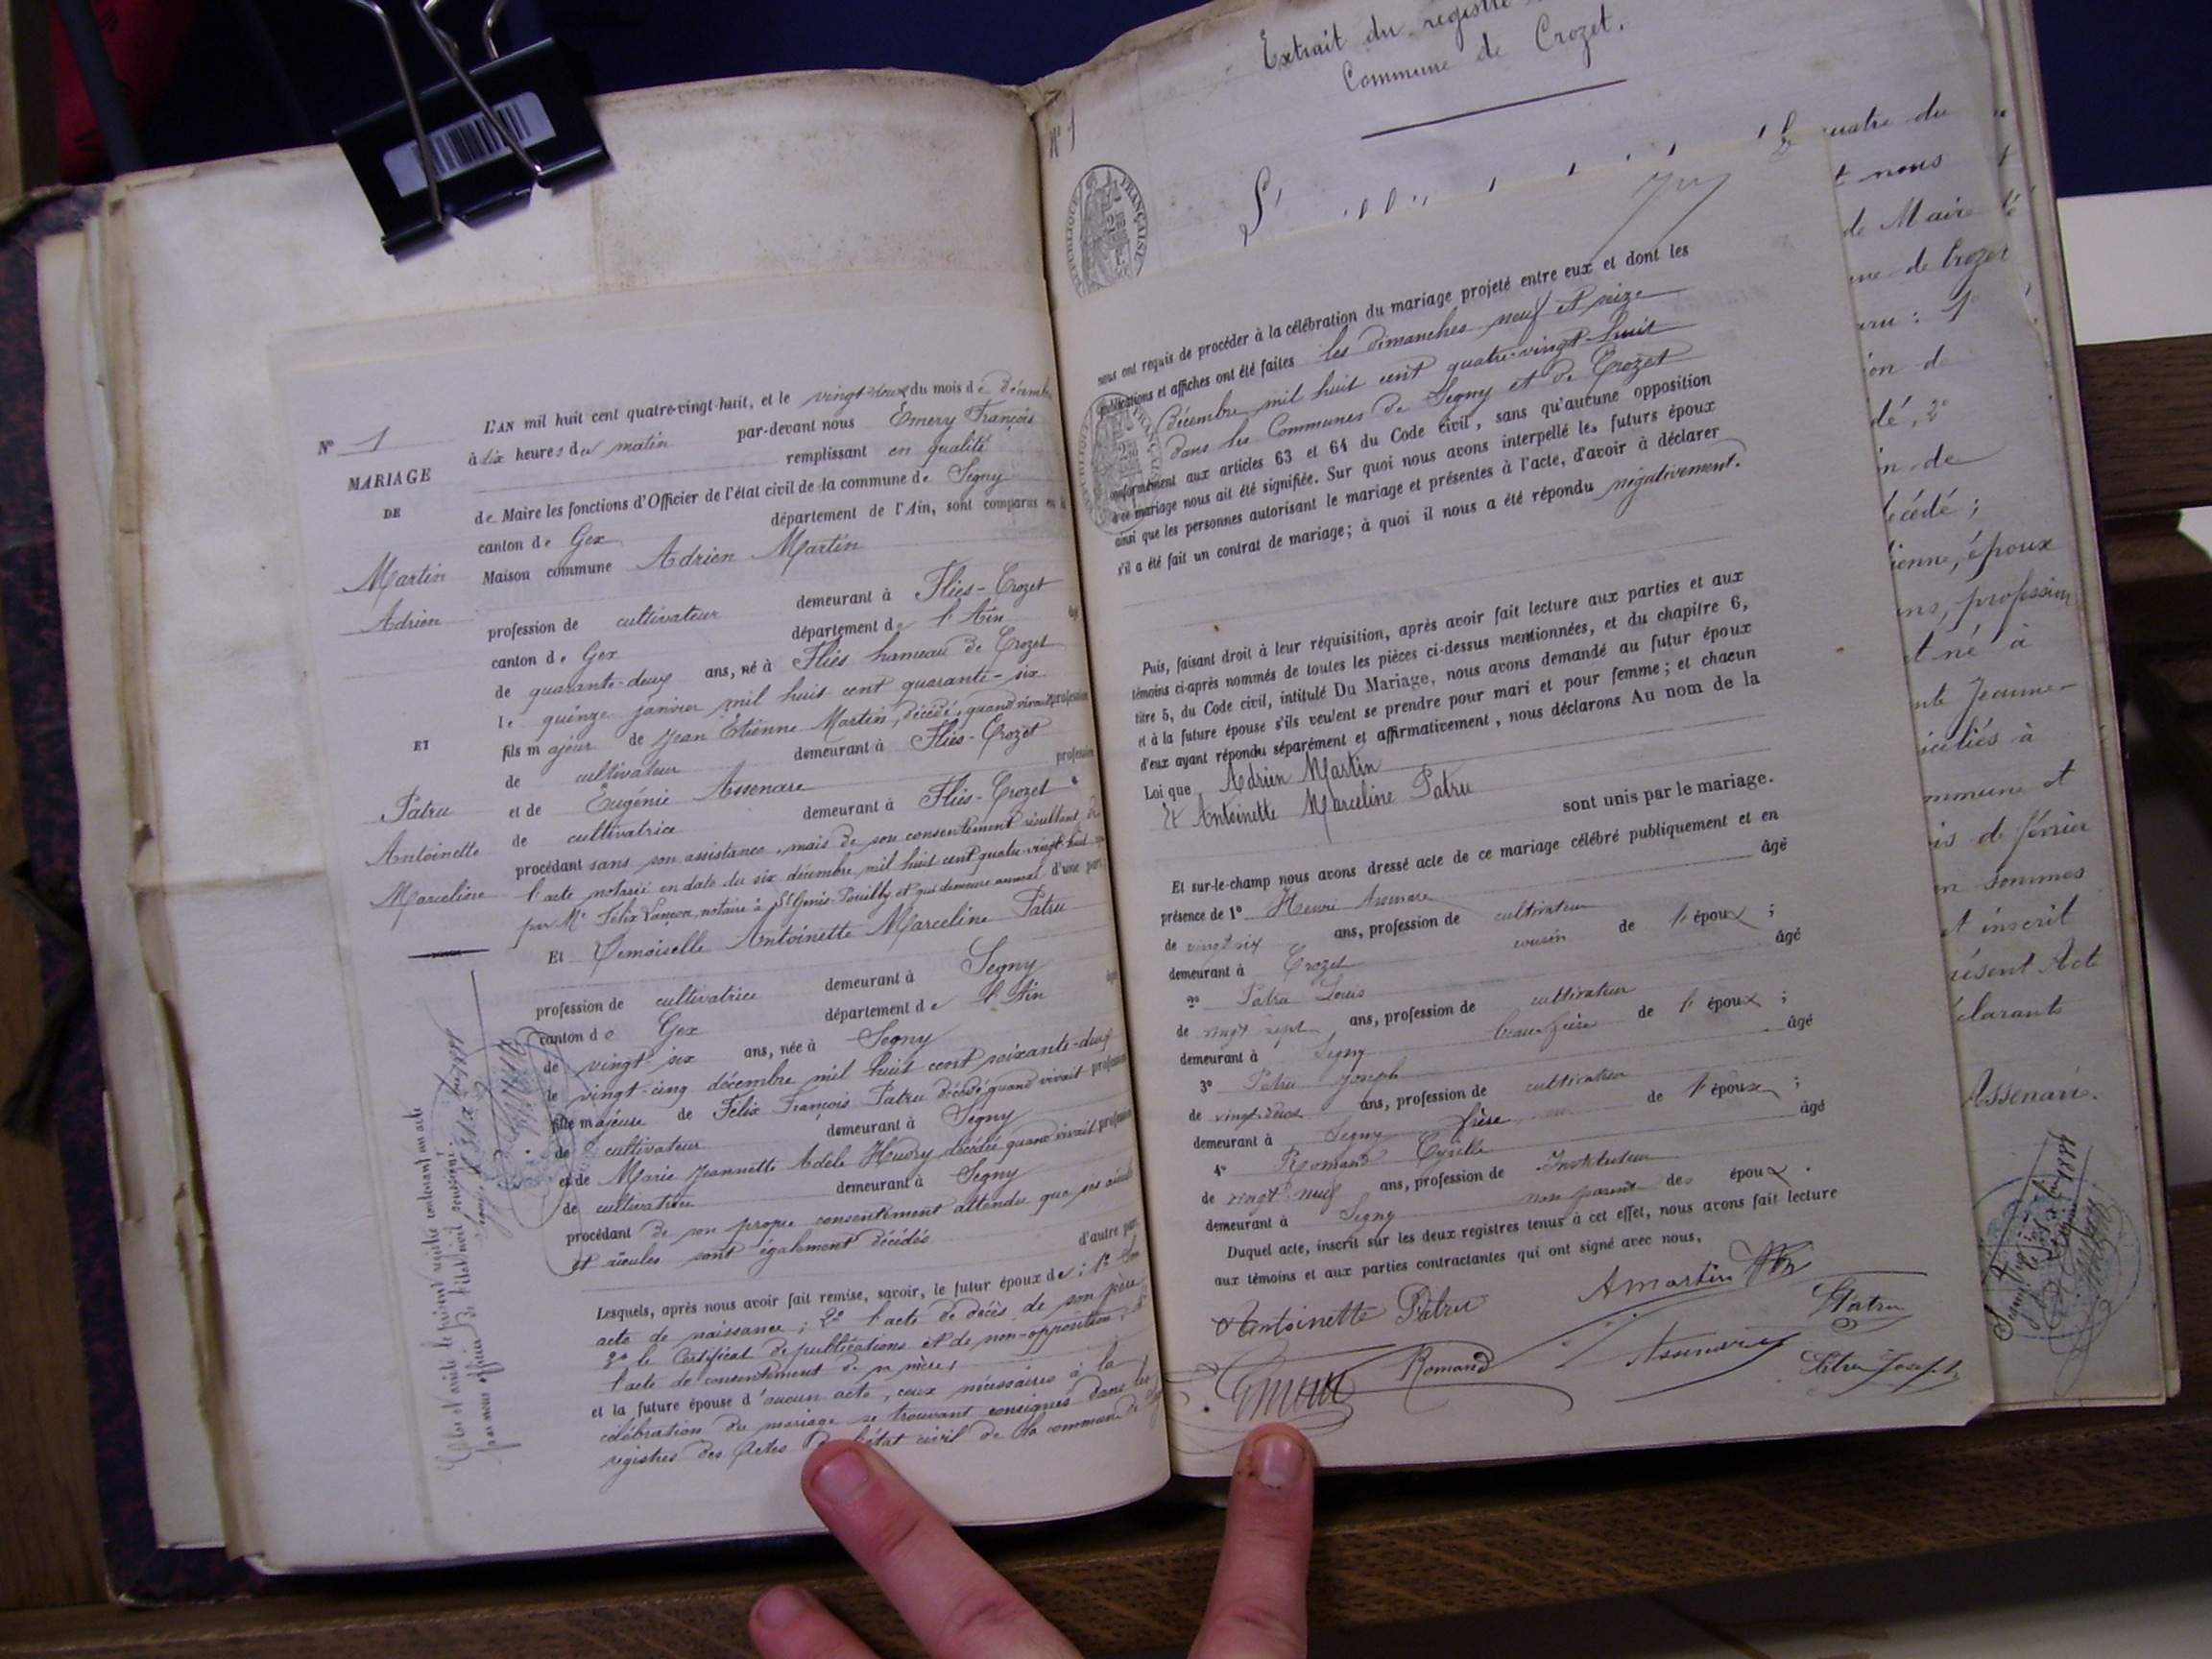 N° 1
MARIAGE
DE
Martin
Adrien
ET
Patru
Antoinette
Marceline
L'AN mil huit cent quatre-vingt-huit, et le vingt-deux du mois de décembre
à dix heures du matin par-devant nous Emery François
remplissant en qualité
de Maire les fonctions d'Officier de l'état civil de la commune de Segny
canton de Gex département de l'Ain, sont comparus en la
Maison commune Adrien Martin
profession de cultivateur demeurant à Flies-Crozet
canton de Gex département de l'Ain âgé
de quarante-deux ans, né à Flies hameau de Crozet
le quinze janvier mil huit cent quarante-six
fils majeur de Jean Etienne Martin, décédé, quand vivait profession
de cultivateur demeurant à Flies-Crozet
et de Eugénie Assenare profession
de cultivatrice demeurant à Flies-Crozet
procédant sans son assistance, mais de son consentement résultant de
l'acte notarié en date du six décembre mil huit cent quatre-vingt huit
par Me Félix Lançon, notaire à St Genis-Pouilly et qui demeure annexé d'une part
Et Demoiselle Antoinette Marceline Patru
profession de cultivatrice demeurant à Segny
canton de Gex département de l'Ain âgée
de vingt-six ans, née à Segny
le vingt-cinq décembre mil huit cent soixante-deux
fille majeure de Félix François Patru décédé quand vivait profession
de cultivateur demeurant à Segny
et de Marie Jeannette Adèle Hudry décédée quand vivait profession
de cultivatrice demeurant à Segny
procédant de son propre consentement attendu que ses aïeuls
et aïeules sont également décédés d'autre part
Lesquels, après nous avoir fait remise, savoir, le futur époux de : 1° Son
acte de naissance ; 2° l'acte de décès de son père
3° le Certificat de publications et de non-opposition ;
l'acte de consentement de sa mère ;
et la future épouse d'aucun acte, ceux nécessaires à la
célébration du mariage se trouvant consignés dans les
registres des Actes de l'état civil de la commune de
Clos et arrêté le présent registre contenant un acte
par nous officier de l'état civil soussigné
Extrait du registre
Commune de Crozet.
N° 1
RÉPUBLIQUE FRANÇAISE
nous ont requis de procéder à la célébration du mariage projeté entre eux et dont les
publications et affiches ont été faites les dimanches neuf et seize
décembre mil huit cent quatre-vingt-huit
dans les Communes de Segny et de Crozet
conformément aux articles 63 et 64 du Code civil, sans qu'aucune opposition
à ce mariage nous ait été signifiée. Sur quoi nous avons interpellé les futurs époux
ainsi que les personnes autorisant le mariage et présentes à l'acte, d'avoir à déclarer
s'il a été fait un contrat de mariage ; à quoi il nous a été répondu négativement.
Puis, faisant droit à leur réquisition, après avoir fait lecture aux parties et aux
témoins ci-après nommés de toutes les pièces ci-dessus mentionnées, et du chapitre 6,
titre 5, du Code civil, intitulé Du Mariage, nous avons demandé au futur époux
et à la future épouse s'ils veulent se prendre pour mari et pour femme ; et chacun
d'eux ayant répondu séparément et affirmativement, nous déclarons Au nom de la
Loi que Adrien Martin
Et Antoinette Marceline Patru
sont unis par le mariage.
Et sur-le-champ nous avons dressé acte de ce mariage célébré publiquement et en
présence de 1° Henri Assenare âgé
de vingt six ans, profession de cultivateur
demeurant à Crozet cousin de l'époux ;
2° Patru Louis âgé
de vingt sept ans, profession de cultivateur
demeurant à Segny beau-frère de l'époux ;
3° Patru Joseph âgé
de vingt-deux ans, profession de cultivateur
demeurant à Segny frère de l'épouse ;
4° Romand Cyrille âgé
de vingt neuf ans, profession de Instituteur
demeurant à Segny non parent des époux.
Duquel acte, inscrit sur les deux registres tenus à cet effet, nous avons fait lecture
aux témoins et aux parties contractantes qui ont signé avec nous,
Antoinette Patru
A Martin
Patru
Emery
Romand
Assenare
Patru Joseph
quatre du
et nous
de Maire
de Crozet
on de
dé, 2°
n de
décédé ;
ienne, époux
ans, profession
et né à
nte Jeanne
iciliés à
mmune et
is de février
en sommes
et inscrit
présent Acte
éclarants
Assenare.